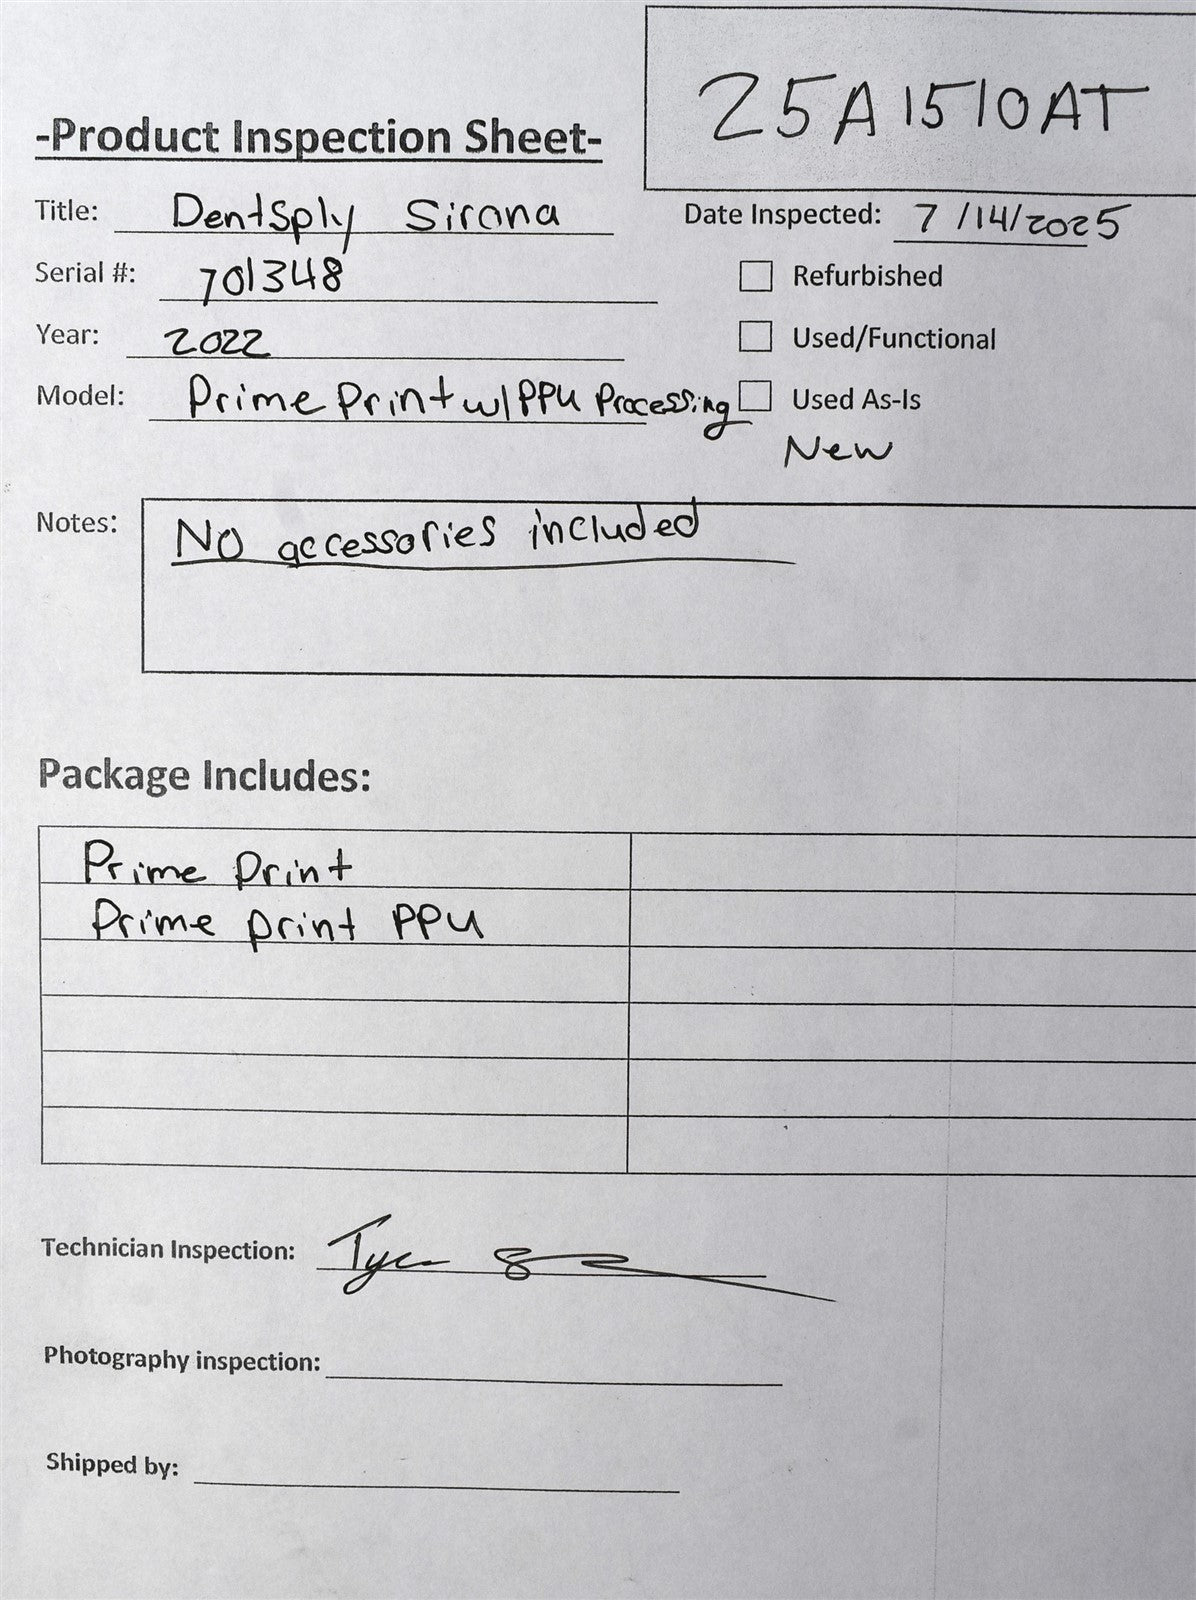 25A1510AT
-Product Inspection Sheet-
Title: DentSply Sirona
Date Inspected: 7/14/2025
Serial #: 701348
Refurbished
Year: 2022
Used/Functional
Model: Prime Print w/ PPU Processing
Used As-Is
New
Notes: No accessories included
Package Includes:
Prime Print
Prime print PPU
Technician Inspection:
Photography inspection:
Shipped by: